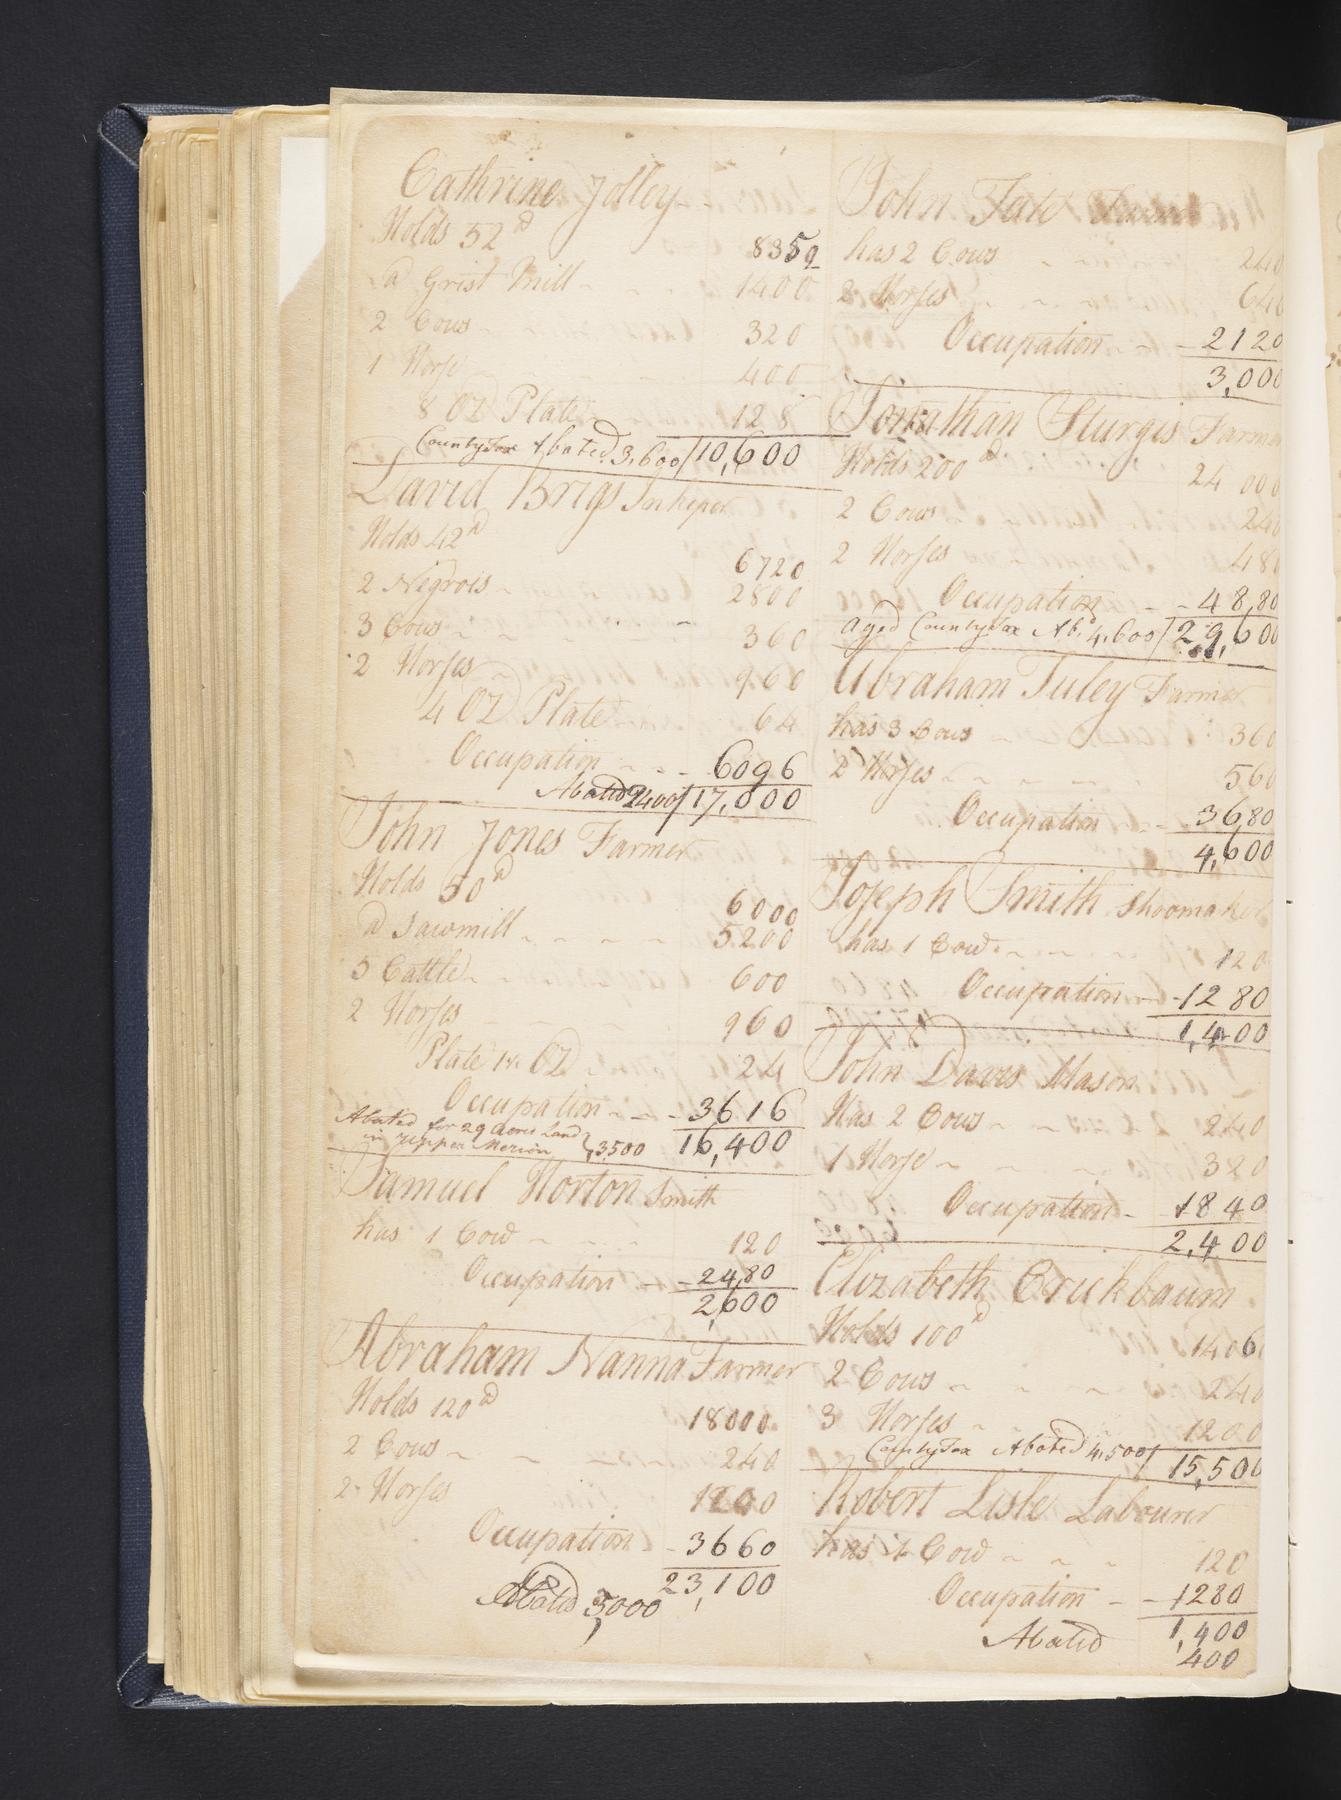 Cathrine Jolley
Holds 52 a
8359
a Grist Mill 1400
2 Cows 320
1 Horse 400
8 Oz Plate 128
County Tax Abated 3,600/ 10,600
David Brigs Inkeper
Holds 42 a
6720
2 Negrois 2800
3 Cows 360
2 Horses 960
4 Oz Plate 64
Occupation 6096
Abated 2400/ 17,000
John Jones Farmer
Holds 50 a
6000
a Sawmill 5200
5 Cattle 600
2 Horses 960
Plate Oz 24
Occupation 3616
Abated for 29 Acres Land
in Upper Merion } 3500 16,400
Samuel Horton Smith
has 1 Cow 120
Occupation 2480
2,600
Abraham Nanna Farmer
Holds 120 a
18000
2 Cows 240
2 Horses 1200
Occupation 3660
23,100
Abated 3,000
John Tate Farmer
has 2 Cows 240
2 Horses 640
Occupation 2120
3,000
Jonathan Sturgis Farmer
Holds 200 a
24 000
2 Cows 240
2 Horses 480
Occupation 48,80
aged County Tax Ab.d 4,600/ 29,600
Abraham Tuley Farmer
has 3 Cows 360
2 Horses 560
Occupation 3680
4,600
Joseph Smith Shoomaker
has 1 Cow 120
Occupation 1280
1,400
John Davis Mason
Has 2 Cows 240
1 Horse 320
Occupation 1840
2,400
Elizabeth Crickbaum
Holds 100 a
14060
2 Cows 240
3 Horses 1200
County Tax Abated 4,500/ 15,500
Robert Lisle Labourer
has 1 Cow 120
Occupation 1280
1,400
Abated 400